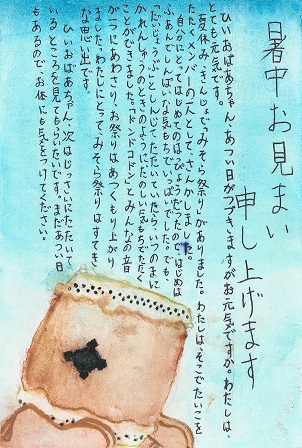 暑中お見まい
申し上げます
ひいおばあちゃん、あつい日がつづきますがお元気ですか。わたしは
とても元気です。
夏休み、きんじょで「みそら祭り」がありました。わたしは、そこでたいこを
たたくメンバーの一人として、さんかしました。
自分にとってはじめてのはっぴょうだったので、はじめは
ふあんでいっぱいな気もちでいっぱいでした。でも、
「だいじょうぶ」としんじてたたいていたら、いつのまにか
かれんしゅうのときのようにたのしい気もちでたたく
ことができました。「ドンドコドン」とみんなの音
が一つにあわさり、お祭りはあつくもり上がり
ました。わたしにとって、みそら祭りはすてき
な思い出です。
ひいおばあちゃん、次はじっさいにたたいて
いるところを見てもらいたいです。まだあつい日
もあるので、お体にも気をつけてください。